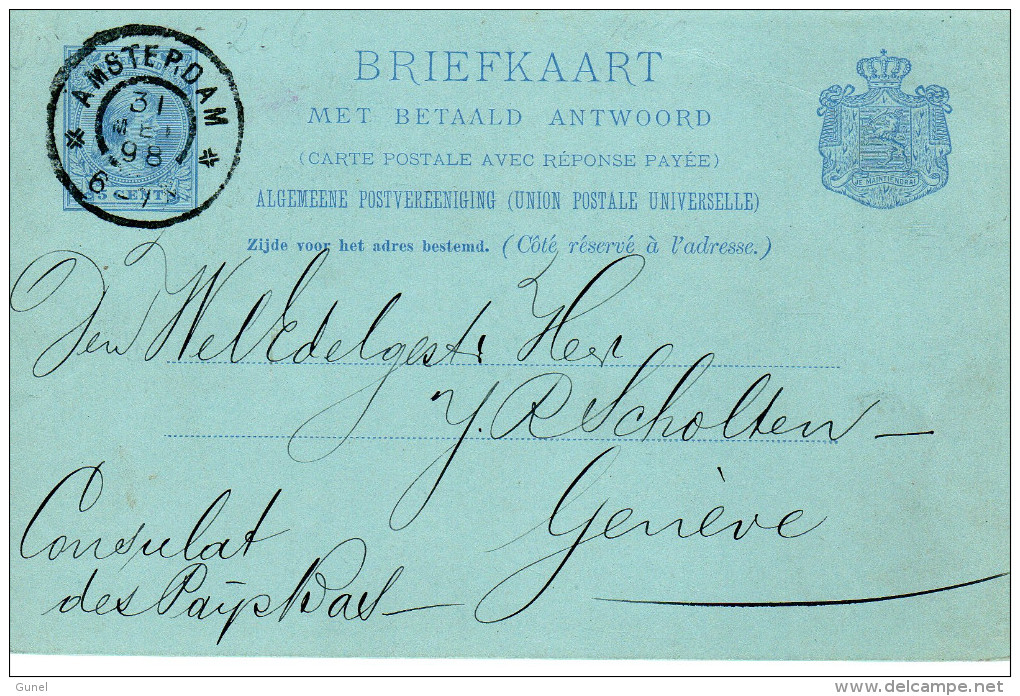 BRIEFKAART
MET BETAALD ANTWOORD
(CARTE POSTALE AVEC RÉPONSE PAYÉE)
ALGEMEENE POSTVEREENIGING (UNION POSTALE UNIVERSELLE)
Zijde voor het adres bestemd. (Côté réservé à l'adresse.)
AMSTERDAM
31
MEI
98
5 CENT
JE MAINTIENDRAI
Den WelEdelgestr Heer
J. R Scholten
Genève
Consulat
des Paÿs Bas
Gunel
delcampe.net